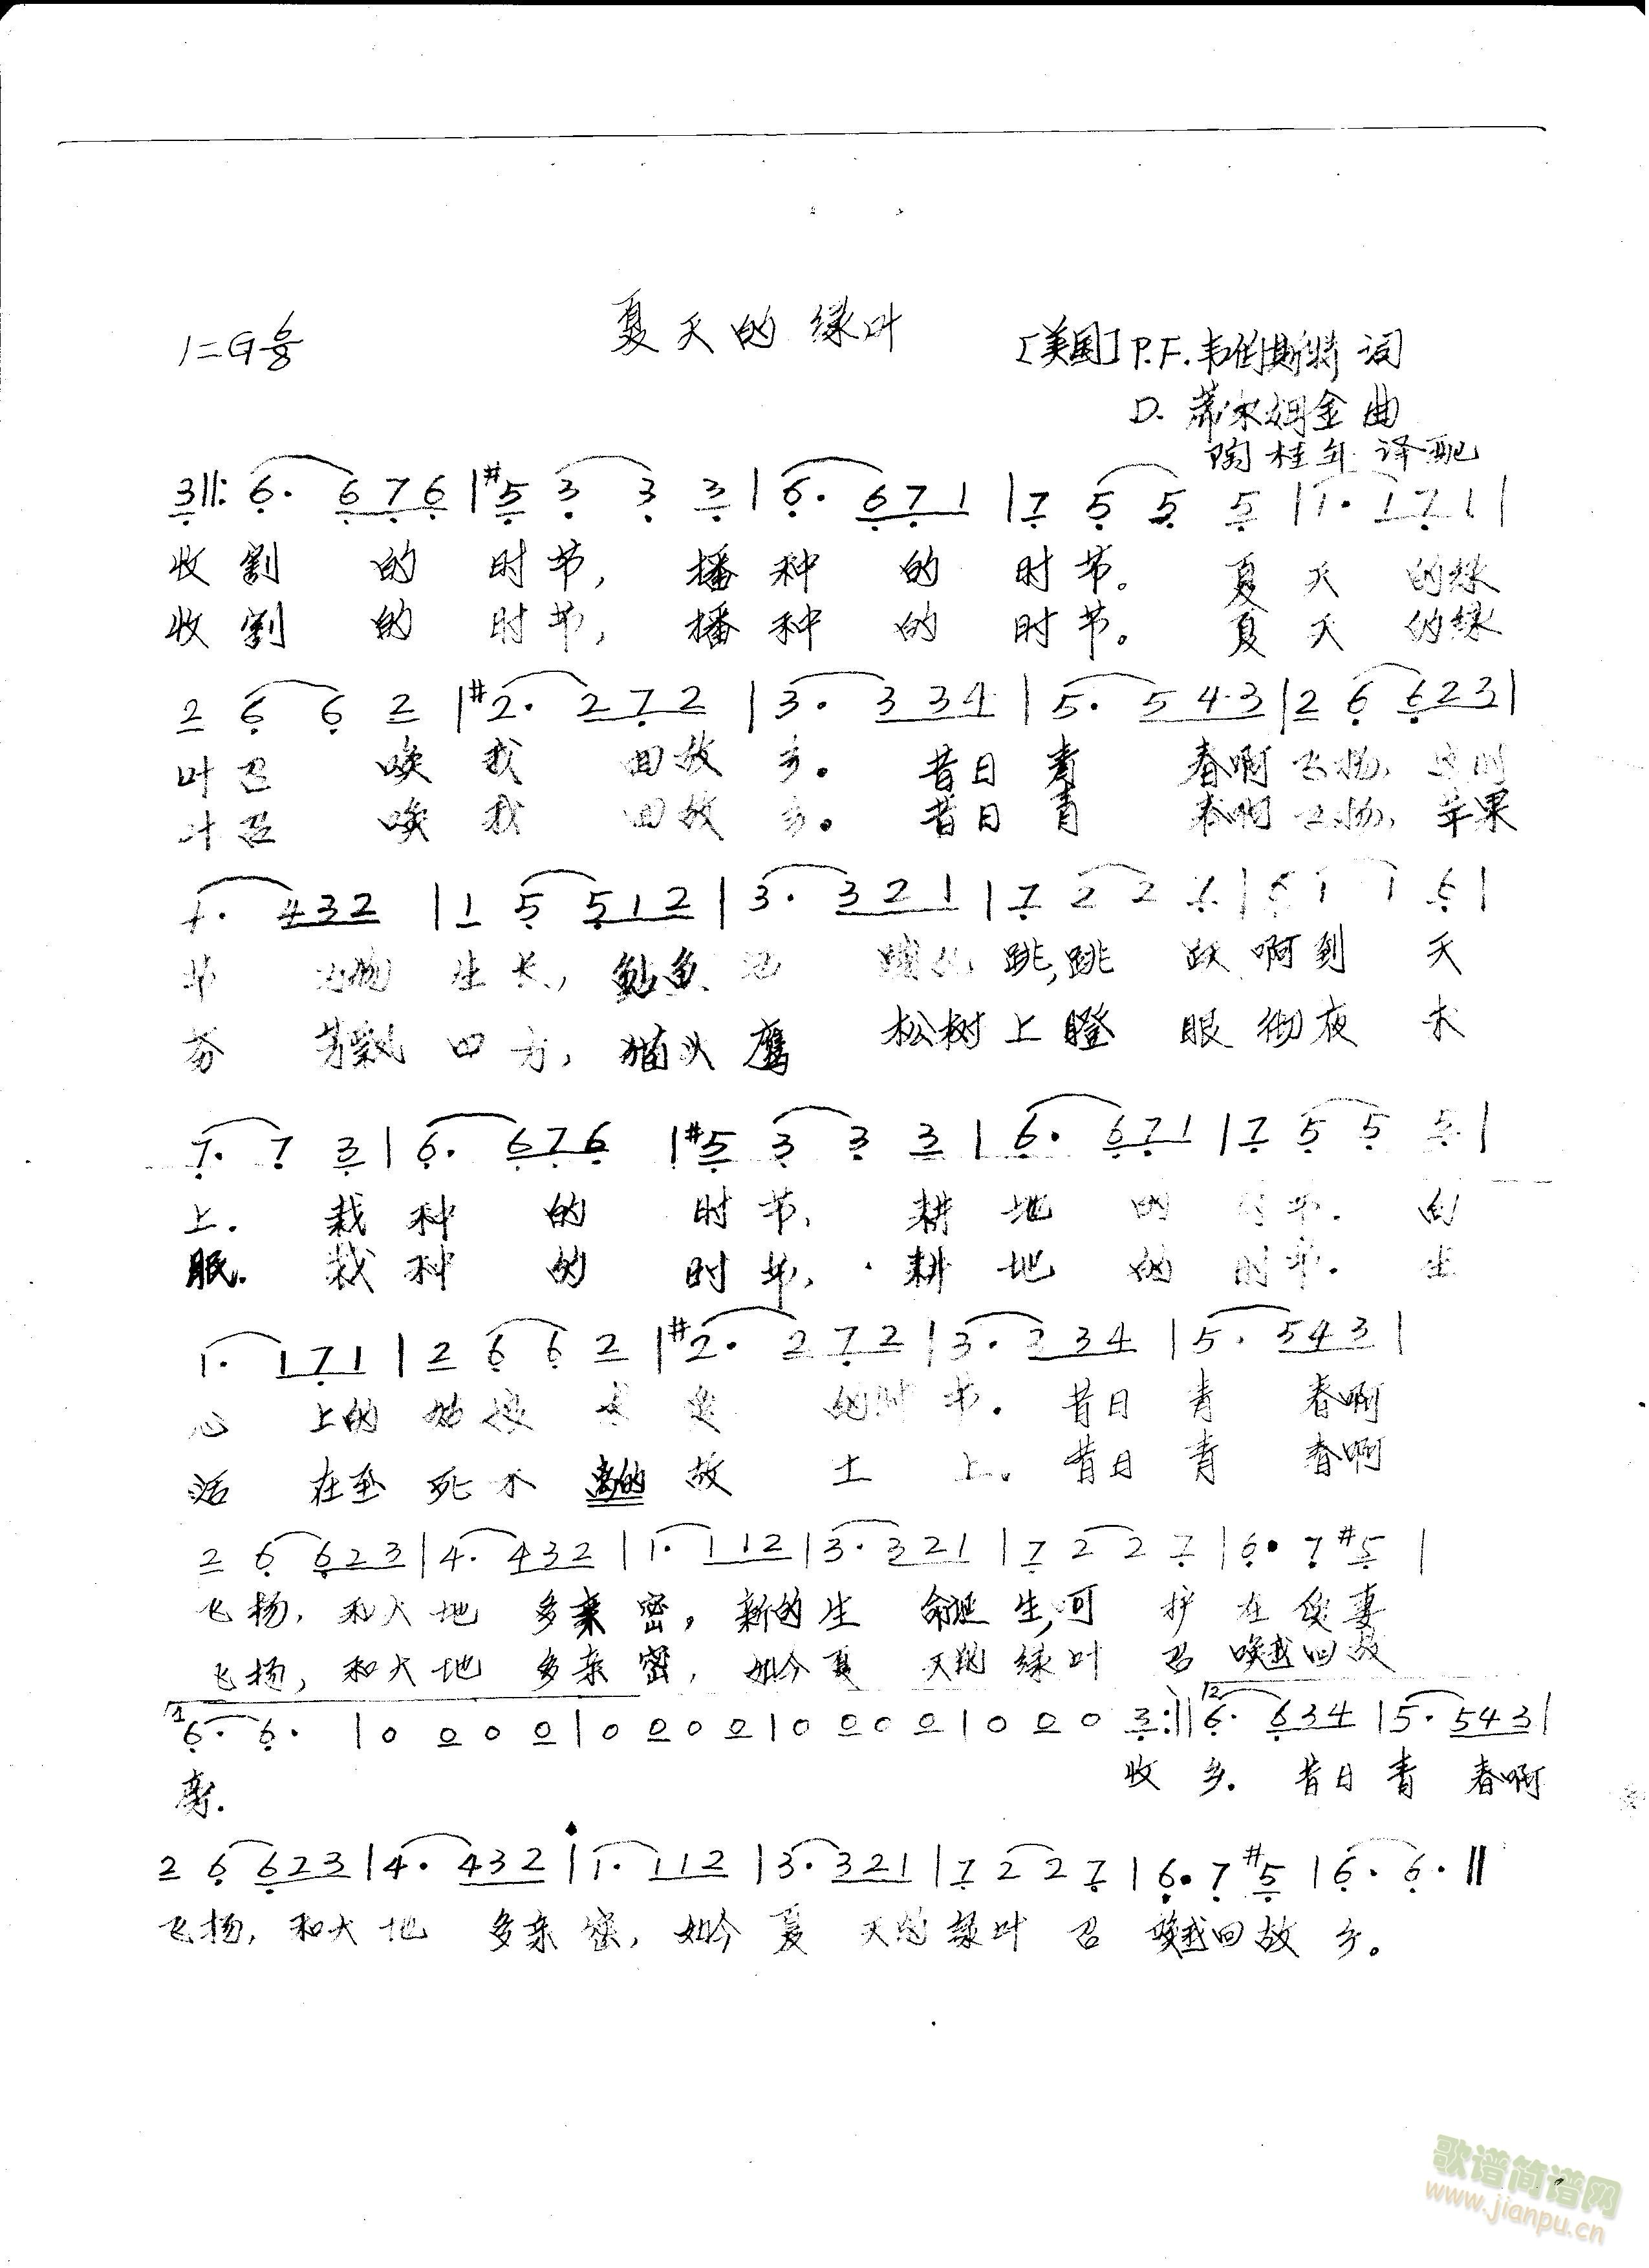 夏天的绿叶
1=G 6/8
[美国]P.F.韦伯斯特 词
D.蒂尔姆金 曲
陶桂年 译配
3||: 6. 6 7 6 |#5 3 3 3 | 6. 6 7 1 | 7 5 5 5 | 1. 1 7 1 |
收割 的 时节, 播种 的 时节。 夏天 的绿
收割 的 时节, 播种 的 时节。 夏天 的绿
2 6 6 2 |#2. 2 7 2 | 3. 3 3 4 | 5. 5 4 3 | 2 6 6 2 3 |
叶召 唤我 回故 乡。 昔日青 春啊飞扬, 这时
叶召 唤我 回故 乡。 昔日青 春啊飞扬, 苹果
4. 4 3 2 | 1 5 5 1 2 | 3. 3 2 1 | 7 2 2 7 | 6 1 1 6 |
节 万物 生长, 鲇鱼 跳,跳 跃啊到 天
芬 芳飘 四方, 猫头鹰 松树上瞪 眼彻夜 未
7. 7 3 | 6. 6 7 6 |#5 3 3 3 | 6. 6 7 1 | 7 5 5 5 |
上. 栽种 的 时节, 耕地 的 时节. 向
眠. 栽种 的 时节, 耕地 的 时节. 生
1. 1 7 1 | 2 6 6 2 |#2. 2 7 2 | 3. 2 3 4 | 5. 5 4 3 |
心 上的 姑娘 求 爱 的时 节. 昔日 青 春啊
活 在至 死不 离的 故 土 上. 昔日 青 春啊
2 6 6 2 3 | 4. 4 3 2 | 1. 1 1 2 | 3. 3 2 1 | 7 2 2 7 | 6. 7 #5 |
飞扬, 和大地 多亲密, 新的生 命诞生,可 护在 妻
飞扬, 和大地 多亲密, 如今夏 天的绿叶 召 唤我回故
1 6. 6. | 0 0 0 0 | 0 0 0 0 | 0 0 0 0 | 0 0 0 3 :|| 2 6. 6 3 4 | 5. 5 4 3 |
旁. 收 乡. 昔日青 春啊
2 6 6 2 3 | 4. 4 3 2 | 1. 1 1 2 | 3. 3 2 1 | 7 2 2 7 | 6. 7 #5 | 6. 6. ||
飞扬, 和大地 多亲密, 如今夏 天的绿叶 召 唤我回故 乡。
歌谱简谱网
www.jianpu.cn